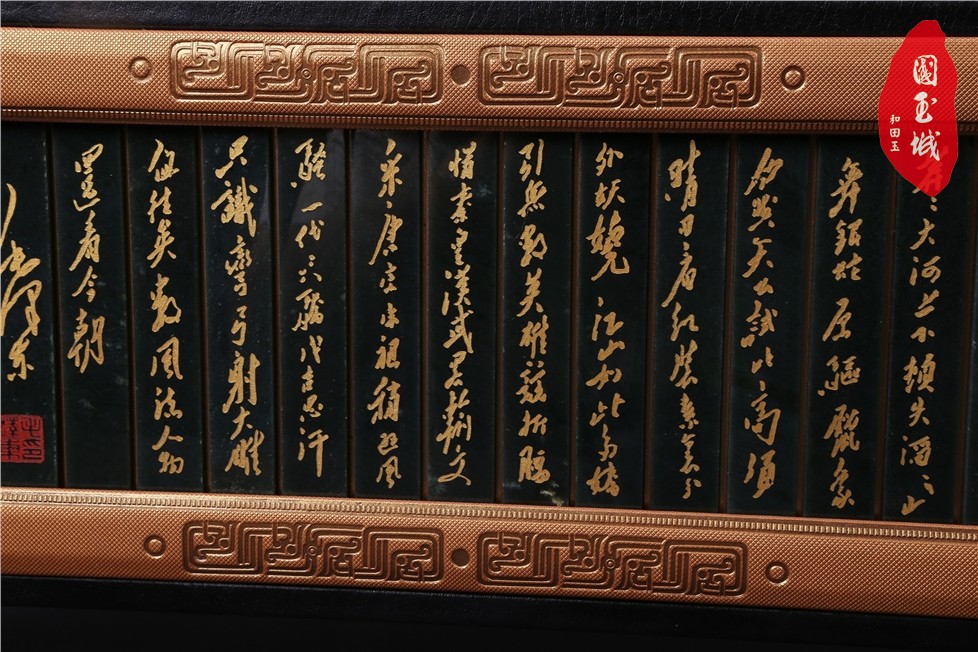 大河上下頓失滔〻山
舞銀蛇原驅臘象
欲與天公試比高須
晴日看紅裝素裹分
外妖嬈江山如此多嬌
引無數英雄競折腰
惜秦皇漢武略輸文
采〻唐宗宋祖稍遜風
騷一代天驕成吉思汗
只識彎弓射大雕
俱往矣數風流人物
還看今朝
毛澤東
國玉城
和田玉